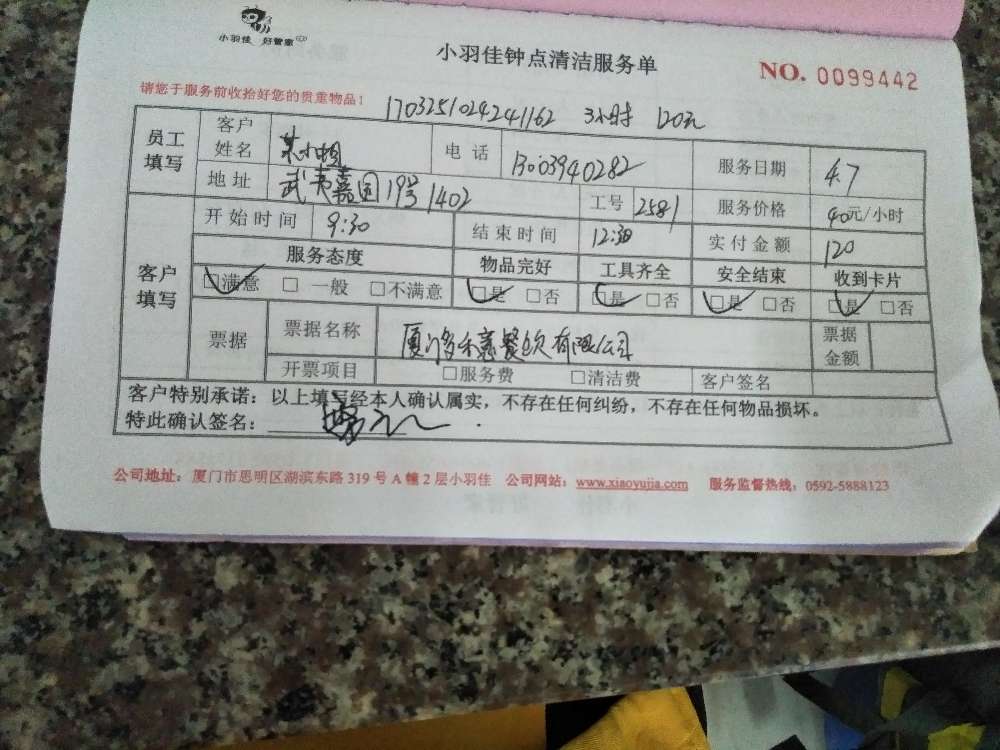 小羽佳 好管家
小羽佳钟点清洁服务单
NO. 0099442
请您于服务前收拾好您的贵重物品!
17032510242241162 3小时 120元
员工填写 客户姓名 电话 13003940282 服务日期 4.7
地址 武夷嘉园19号1402 工号 2581 服务价格 40元/小时
客户填写 开始时间 9:30 结束时间 12:30 实付金额 120
服务态度 物品完好 工具齐全 安全结束 收到卡片
□满意 □一般 □不满意 □是 □否 □是 □否 □是 □否 □是 □否
票据 票据名称 厦门 餐饮有限公司 票据金额
开票项目 □服务费 □清洁费 客户签名
客户特别承诺:以上填写经本人确认属实,不存在任何纠纷,不存在任何物品损坏。
特此确认签名:
公司地址:厦门市思明区湖滨东路 319 号 A 幢 2 层小羽佳 公司网站:www.xiaoyujia.com 服务监督热线:0592-5888123